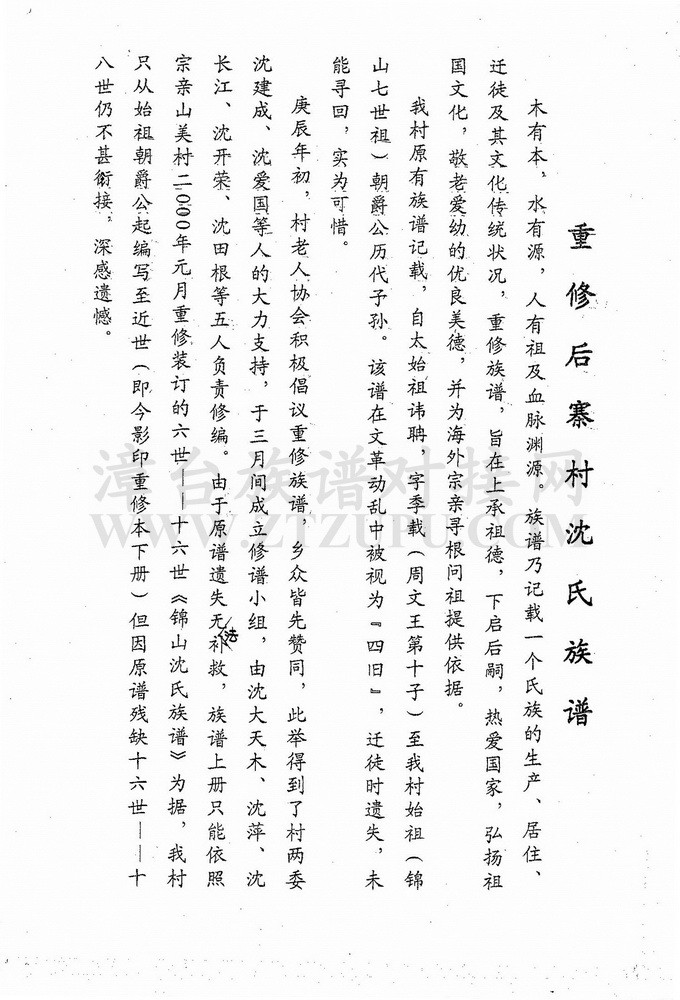 重修后寨村沈氏族谱
木有本，水有源，人有祖及血脉渊源。族谱乃记载一个氏族的生产、居住、
迁徒及其文化传统状况，重修族谱，旨在上承祖德，下启后嗣，热爱国家，弘扬祖
国文化，敬老爱幼的优良美德，并为海外宗亲寻根问祖提供依据。
我村原有族谱记载，自太始祖讳聃，字季载（周文王第十子）至我村始祖（锦
山七世祖）朝爵公历代子孙。该谱在文革动乱中被视为『四旧』，迁徒时遗失，未
能寻回，实为可惜。
庚辰年初，村老人协会积极倡议重修族谱，乡众皆先赞同，此举得到了村两委
沈建成、沈爱国等人的大力支持，于三月间成立修谱小组，由沈大天木、沈萍、沈
长江、沈开荣、沈田根等五人负责修编。由于原谱遗失无法补救，族谱上册只能依照
宗亲山美村二000年元月重修装订的六世——十六世《锦山沈氏族谱》为据，我村
只从始祖朝爵公起编写至近世（即今影印重修本下册）但因原谱残缺十六世——十
八世仍不甚衔接，深感遗憾。
漳台族谱对接网
WWW.ZTZUPU.COM